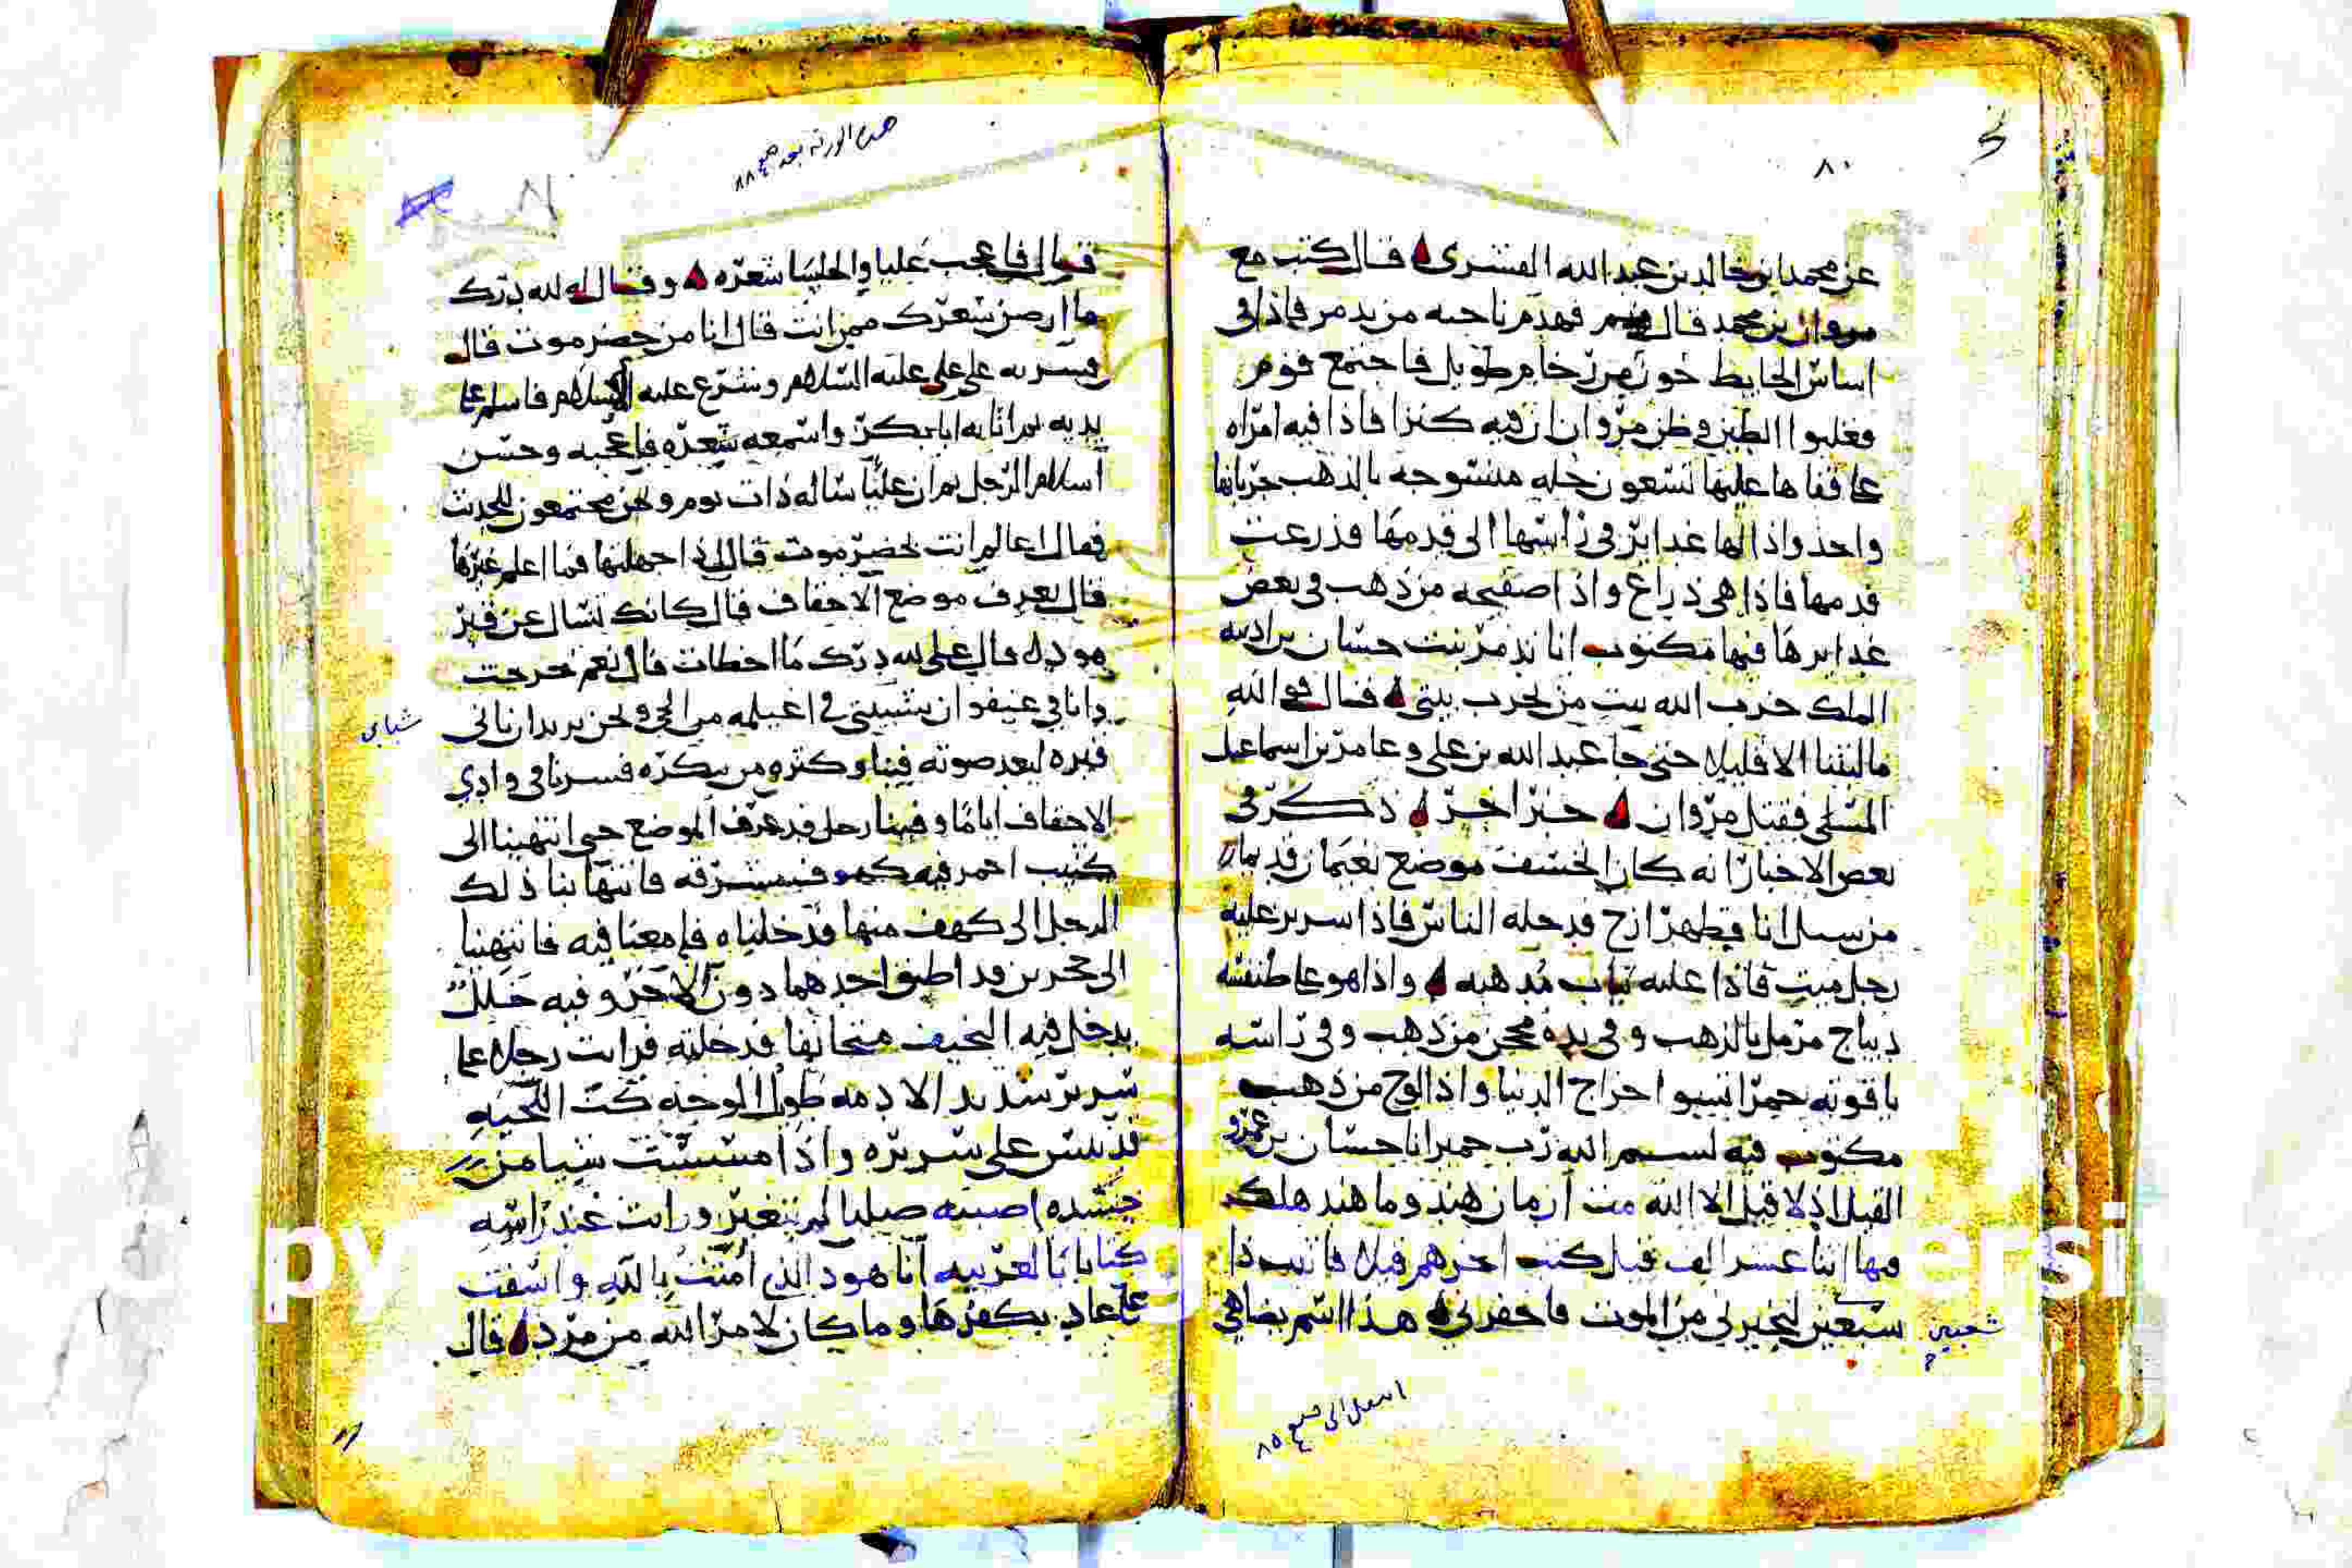 ٨٠
عن محمد ابن خالد بن عبد الله القشرى قال كنت مع
مروان بن محمد قال فهدم ناحيه من تدمر فاذا فى
اساس الحايط جون من رخام طويل فاجتمع قوم
فقلبوا الطبق وظن مروان ان فيه كنزا فاذا فيه امراه
على قفاها عليها تسعون حله منسوجه بالذهب جربانها
واحد واذا لها غدايز فى راسها الى قدمها فذرعت
قدمها فاذا هى ذراع واذا صفيحه من ذهب فى بعض
غدايرها فيها مكتوب انا تدمر بنت حسان بن اذينه
الملك خرب الله بيت من يخرب بيتى قال فوالله
مالبثنا الا قليلا حتى جا عبد الله بن على وعامر بن اسماعيل
المسلى فقتل مروان خبر اخر ذكر فى
بعض الاخبار انه كان الخسف موضع نعمان قديما
من سيل اتا فظهر ازج فدخله الناس فاذا سرير عليه
رجل ميت فاذا عليه ثياب مذهبه واذا هو على طنفسه
ديباج مرمل بالذهب وفى يده محجن من ذهب وفى راسه
ياقوته حمرا تسوا خراج الدنيا واذا لوح من ذهب
مكتوب فيه بسم الله رب حمير انا حسان بن عمرو
القيل اذ لا قيل الا الله مت ازمان هيد وما هيد هلك
فيها اثنا عشر الف قيل كنت اخرهم قيلا فاتيت ذا
سعبين ليجيرنى من الموت فاخفرنى هذا اسم يضاهى
شعبين
انتقل الى ٨٥
هذه الورقه بعد ٨٨
قال فاعجب عليا والجلسا شعره وقال له لله درك
ما ارصن شعرك ممن انت قال انا من حضرموت قال
فسر به على عليه السلام وشرع عليه الاسلام فاسلم على
يديه ثم اتا به ابا بكر واسمعه شعره فاعجبه وحسن
اسلام الرجل ثم ان عليا ساله ذات يوم ونحن مجتمعون للحديث
فقال اعالم انت بحضرموت قال اذا جهلتها فما اعلم غيرها
قال تعرف موضع الاحقاف قال كانك تسال عن قبر
هود قال على لله درك ما اخطات قال نعم خرجت
وانا فى عنيفوان شبيبتى فى اغيلمه من الحى ونحن نريد ان ناتى
شبابى
قبره لبعد صوته فينا وكثره من يذكره فسرنا فى وادى
الاحقاف اياما وفينا رجل قد عرف الموضع حتى انتهينا الى
كثيب احمر فيه كهوف مشرقه فانتها بنا ذلك
الرجل الى كهف منها فدخلناه فامعنا فيه فانتهينا
الى حجرين قد اطبق احدهما دون الاخر وفيه خلل
يدخل فيه النحيف متجانفا فدخلته فرايت رجلا على
سرير شديد الادمه طويل الوجه كث اللحيه
قد يبس على سريره واذا مسست شيا من
جسده اصبته صليبا لم يتغير ورايت عند راسه
كتابا بالعربيه انا هود الذى امنت بالله واسفت
على عاد بكفرها وما كان لامر الله من مرد قال